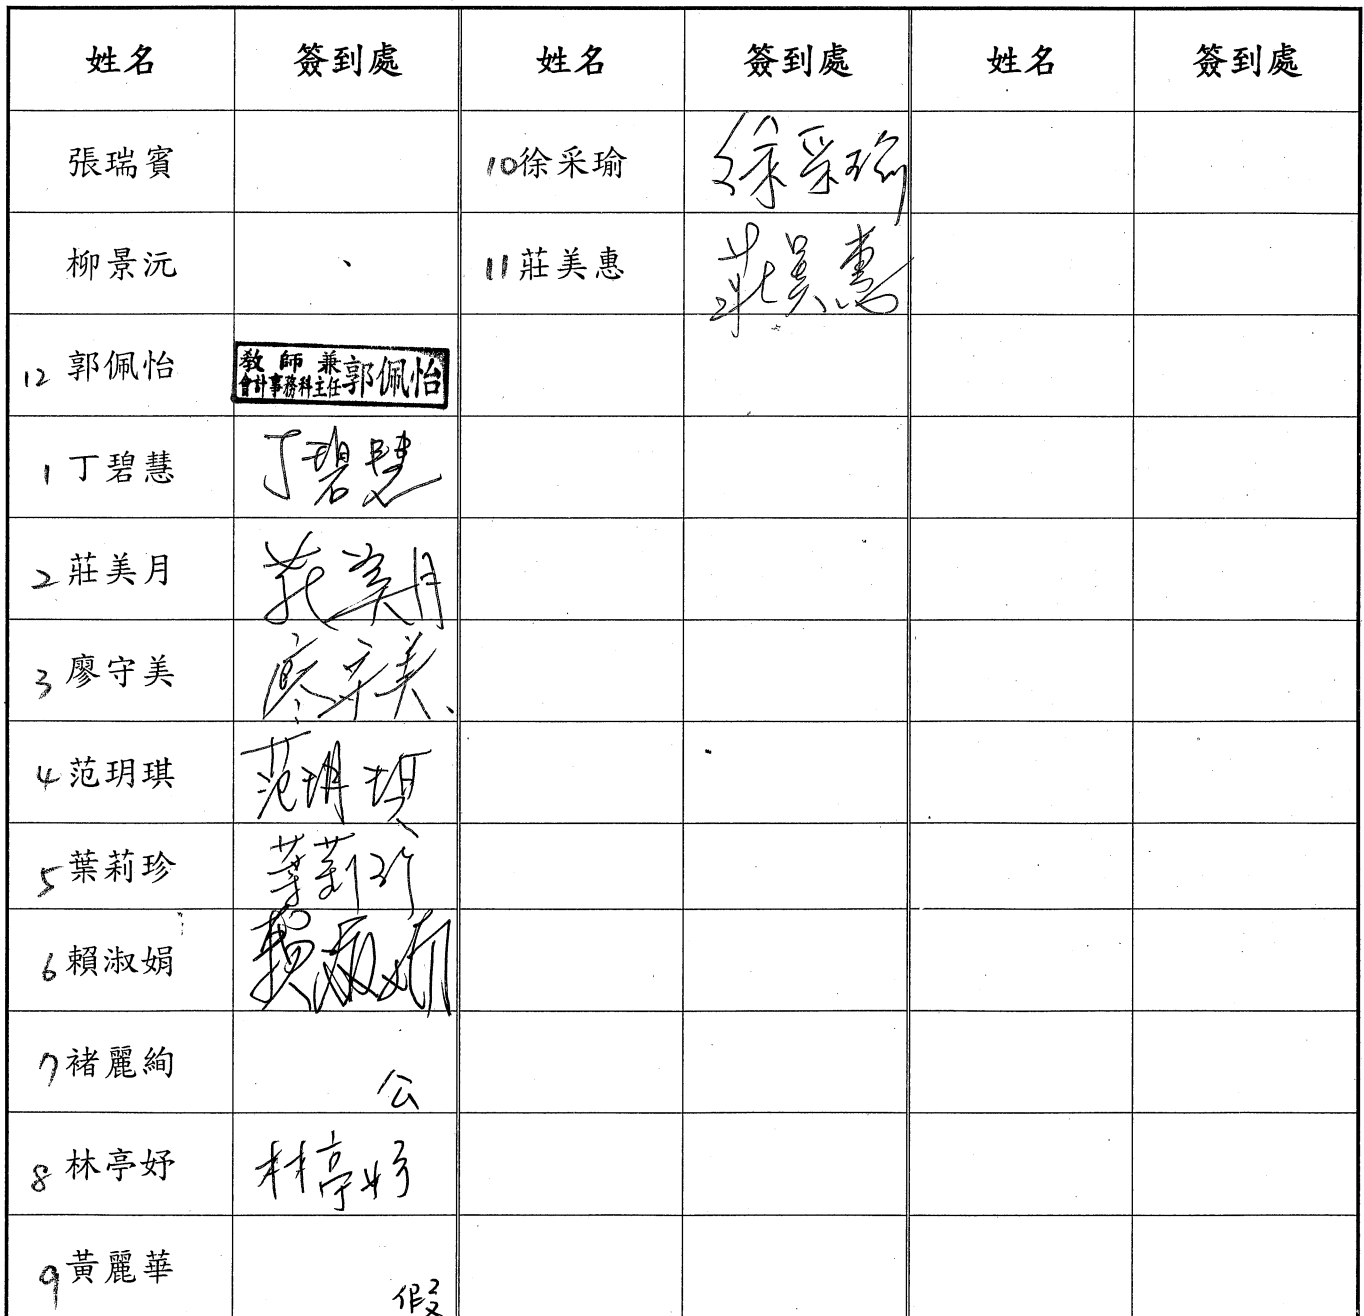 姓名 簽到處 姓名 簽到處 姓名 簽到處
張瑞賓 10徐采瑜 徐采瑜
柳景沅 11莊美惠 莊美惠
12 郭佩怡 教師兼會計事務科主任 郭佩怡
1 丁碧慧 丁碧慧
2 莊美月 莊美月
3 廖守美 廖守美
4 范玥琪 范玥琪
5 葉莉珍 葉莉珍
6 賴淑娟 賴淑娟
7 褚麗絢 公
8 林亭妤 林亭妤
9 黃麗華 假